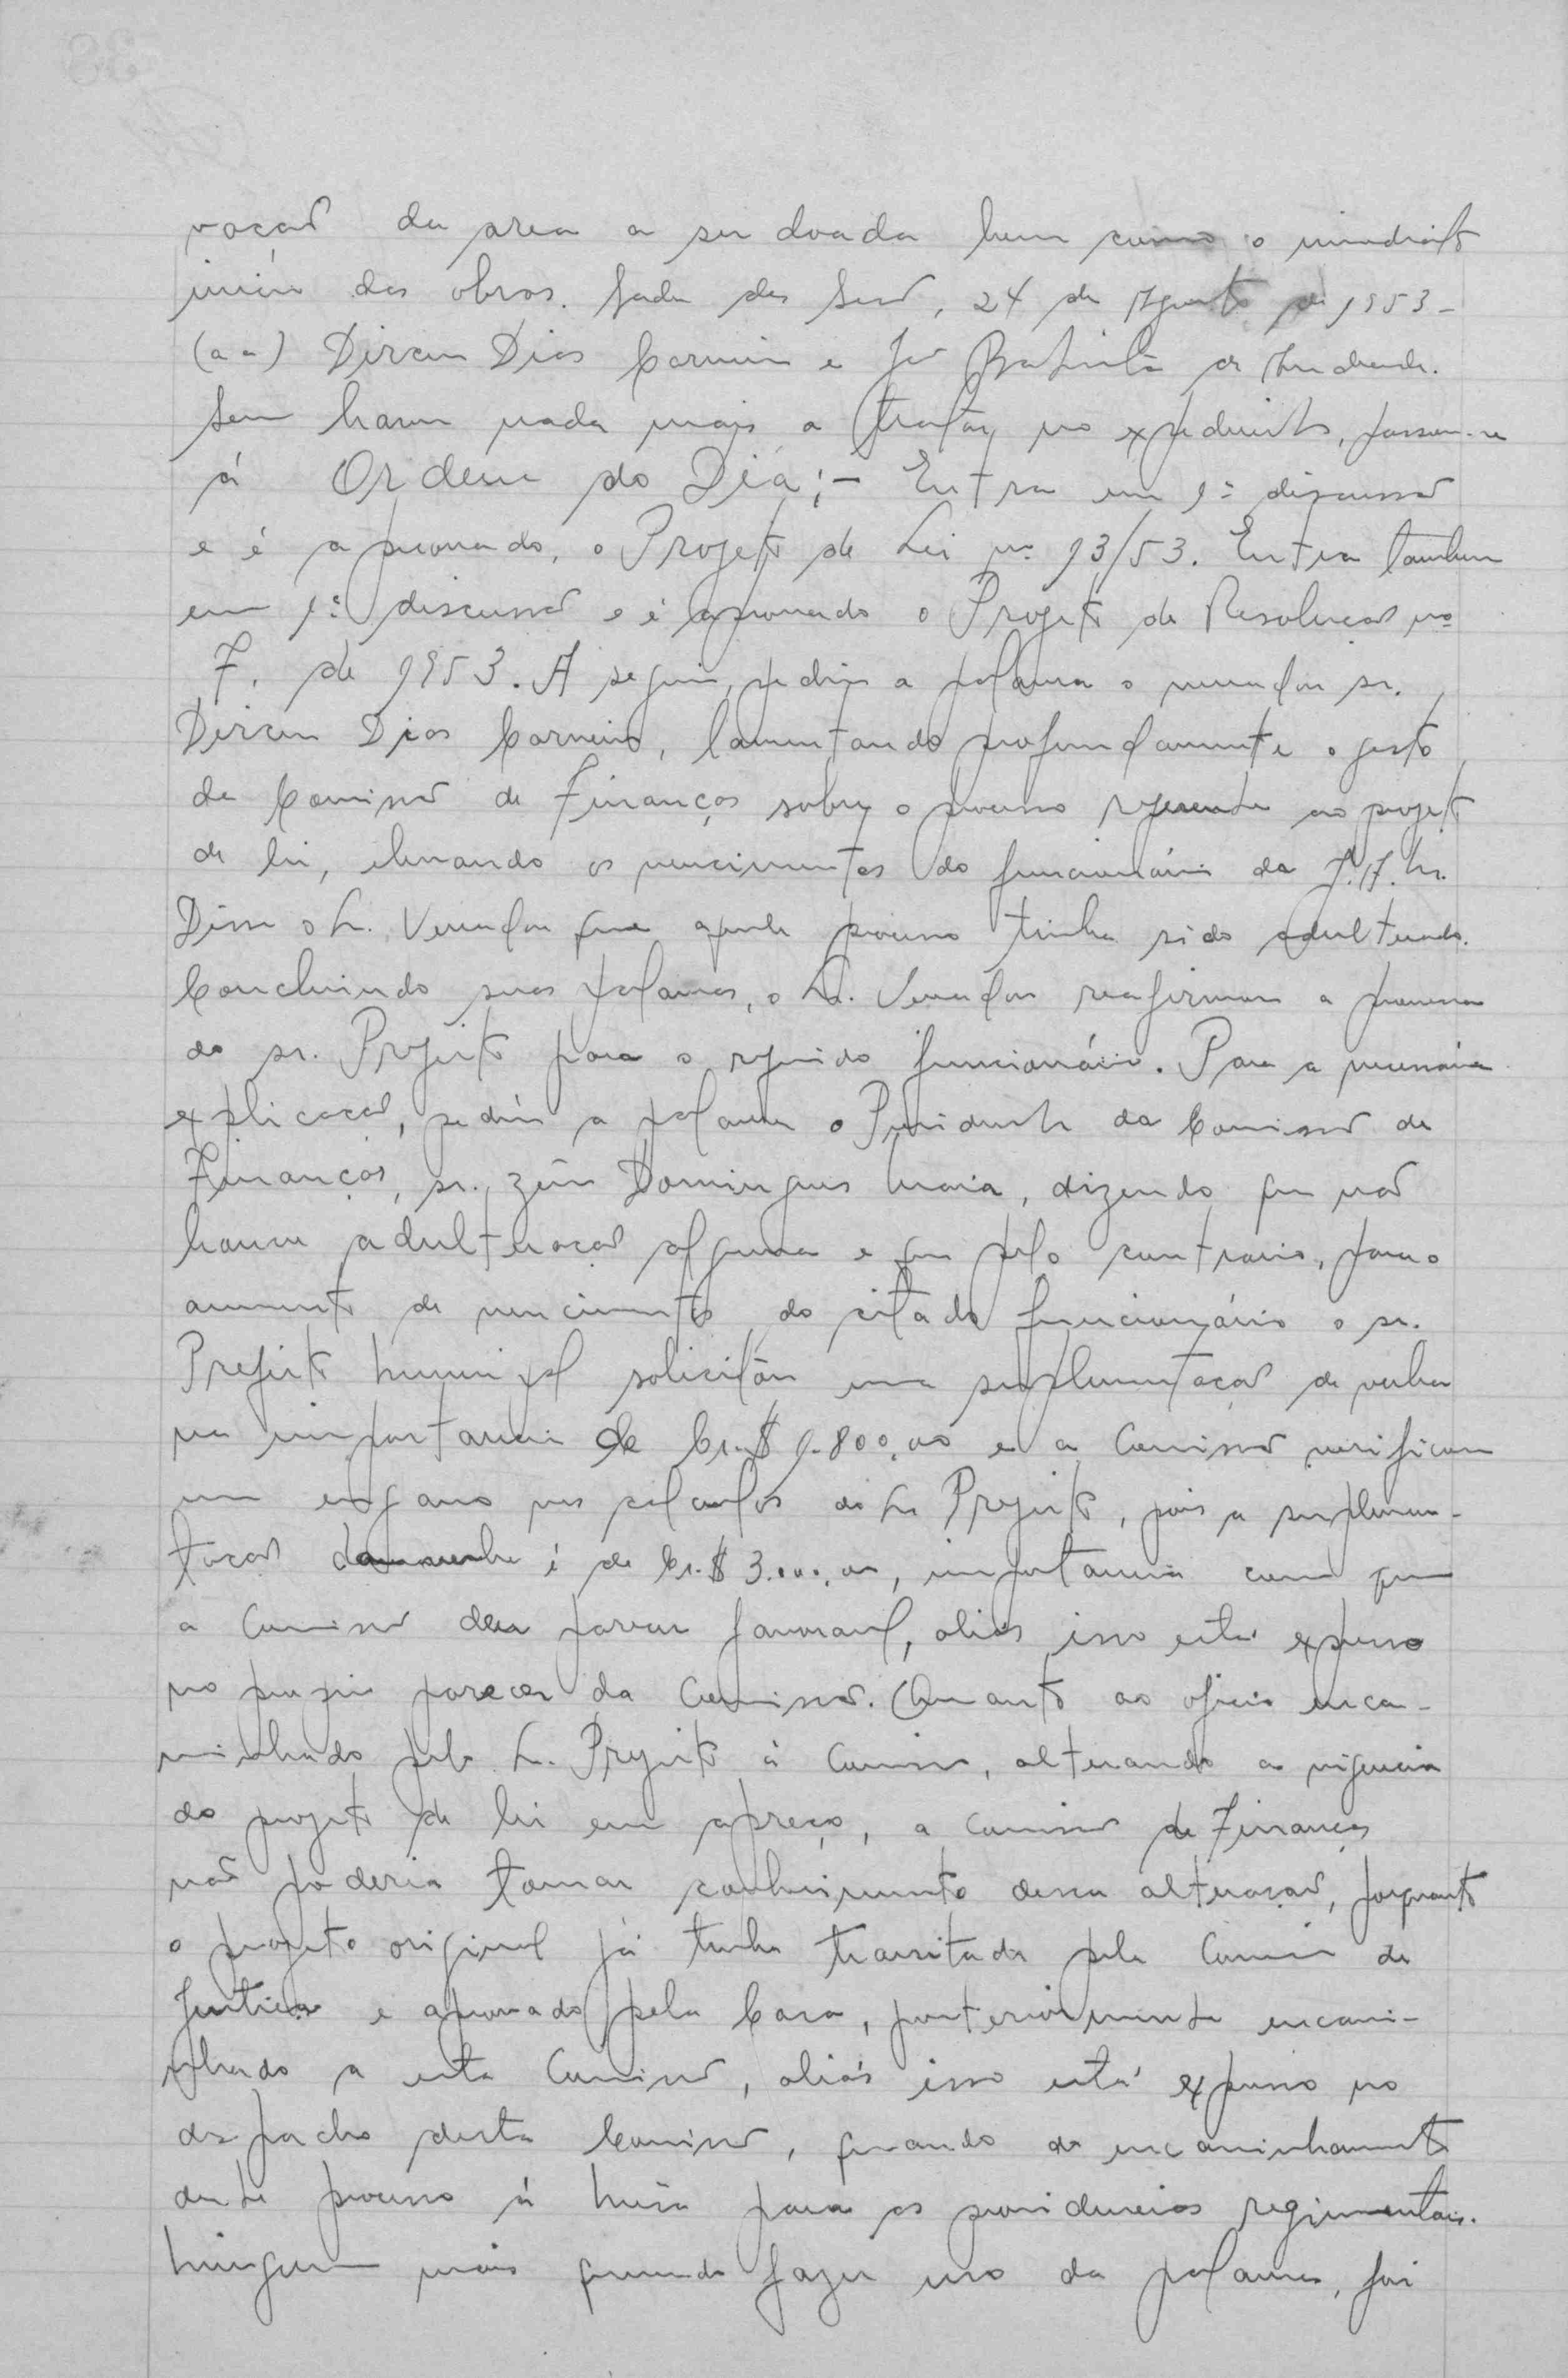 vação da area a ser doada bem como o imediato
inicio das obras. Sala das Sess., 24 de Agosto de 1953 -
(a a) Dirceu Dias Carneiro e José Batista de Andrade.
Sem haver nada mais a tratar no expediente, passou-se
á Ordem do Dia:- Entra em 1ª discussão
e é aprovado, o Projeto de Lei nº 13/53. Entra tambem
em 1ª discussão e é aprovado o Projeto de Resolução nº
7. de 1953. A seguir, pediu a palavra o vereador sr.
Dirceu Dias Carneiro, lamentando profundamente o gesto
da Comissão de Finanças sobre o processo referente ao projeto
de lei, elevando os vencimentos do funcionário da J. A. M.
Disse o Sr. Vereador que aquele processo tinha sido adulterado.
Concluindo suas palavras, o Sr. Vereador reafirmou a promessa
do sr. Prefeito para o referido funcionário. Para a necessária
explicação, pediu a palavra o Presidente da Comissão de
Finanças, sr. Domingues Maia, dizendo que não
houve adulteração alguma e que pelo contrario, para o
aumento de vencimentos do citado funcionário o sr.
Prefeito Municipal solicitou uma suplementação de verba
na importancia de Cr.$ 1.800,00 e a Comissão verificou
um engano nos calculos do Sr Prefeito, pois a suplemen-
tação da verba é de Cr.$ 3.000,00, importancia com que
a Comissão deu parecer favoravel, aliás isso está expresso
no proprio parecer da Comissão. Quanto ao oficio enca-
minhado pelo Sr. Prefeito á Comissão, alterando a vigencia
do projeto de lei em apreço, a Comissão de Finanças
não poderia tomar conhecimento dessa alteração, porquanto
o projeto original já tinha transitado pela Comissão de
Justiça e aprovado pela Casa, posteriormente encami-
nhado a esta Comissão, aliás isso está expresso no
despacho desta Comissão, quando do encaminhamento
deste processo á Mesa para as providencias regimentais.
Ninguem mais querendo fazer uso da palavra, foi